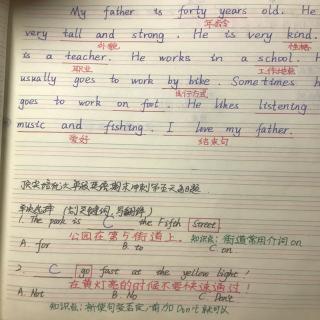 My father is forty years old. He
年龄
very tall and strong. He is very kind.
外貌 性格
is a teacher. He works in a school. H
职业 工作地点
usually goes to work by bike. Sometimes h
出行方式
goes to work on foot. He likes listening
music and fishing. I love my father.
爱好 结束句
1. The park is C the Fifth Street
公园在第5街道上。 知识点: 街道常用介词on
A. for B. to C. on
2. C go fast at the yellow light!
在黄灯亮的时候不要快速通过!
A. Not B. No C. Don't
知识点: 祈使句变否定, 前加Don't就可以